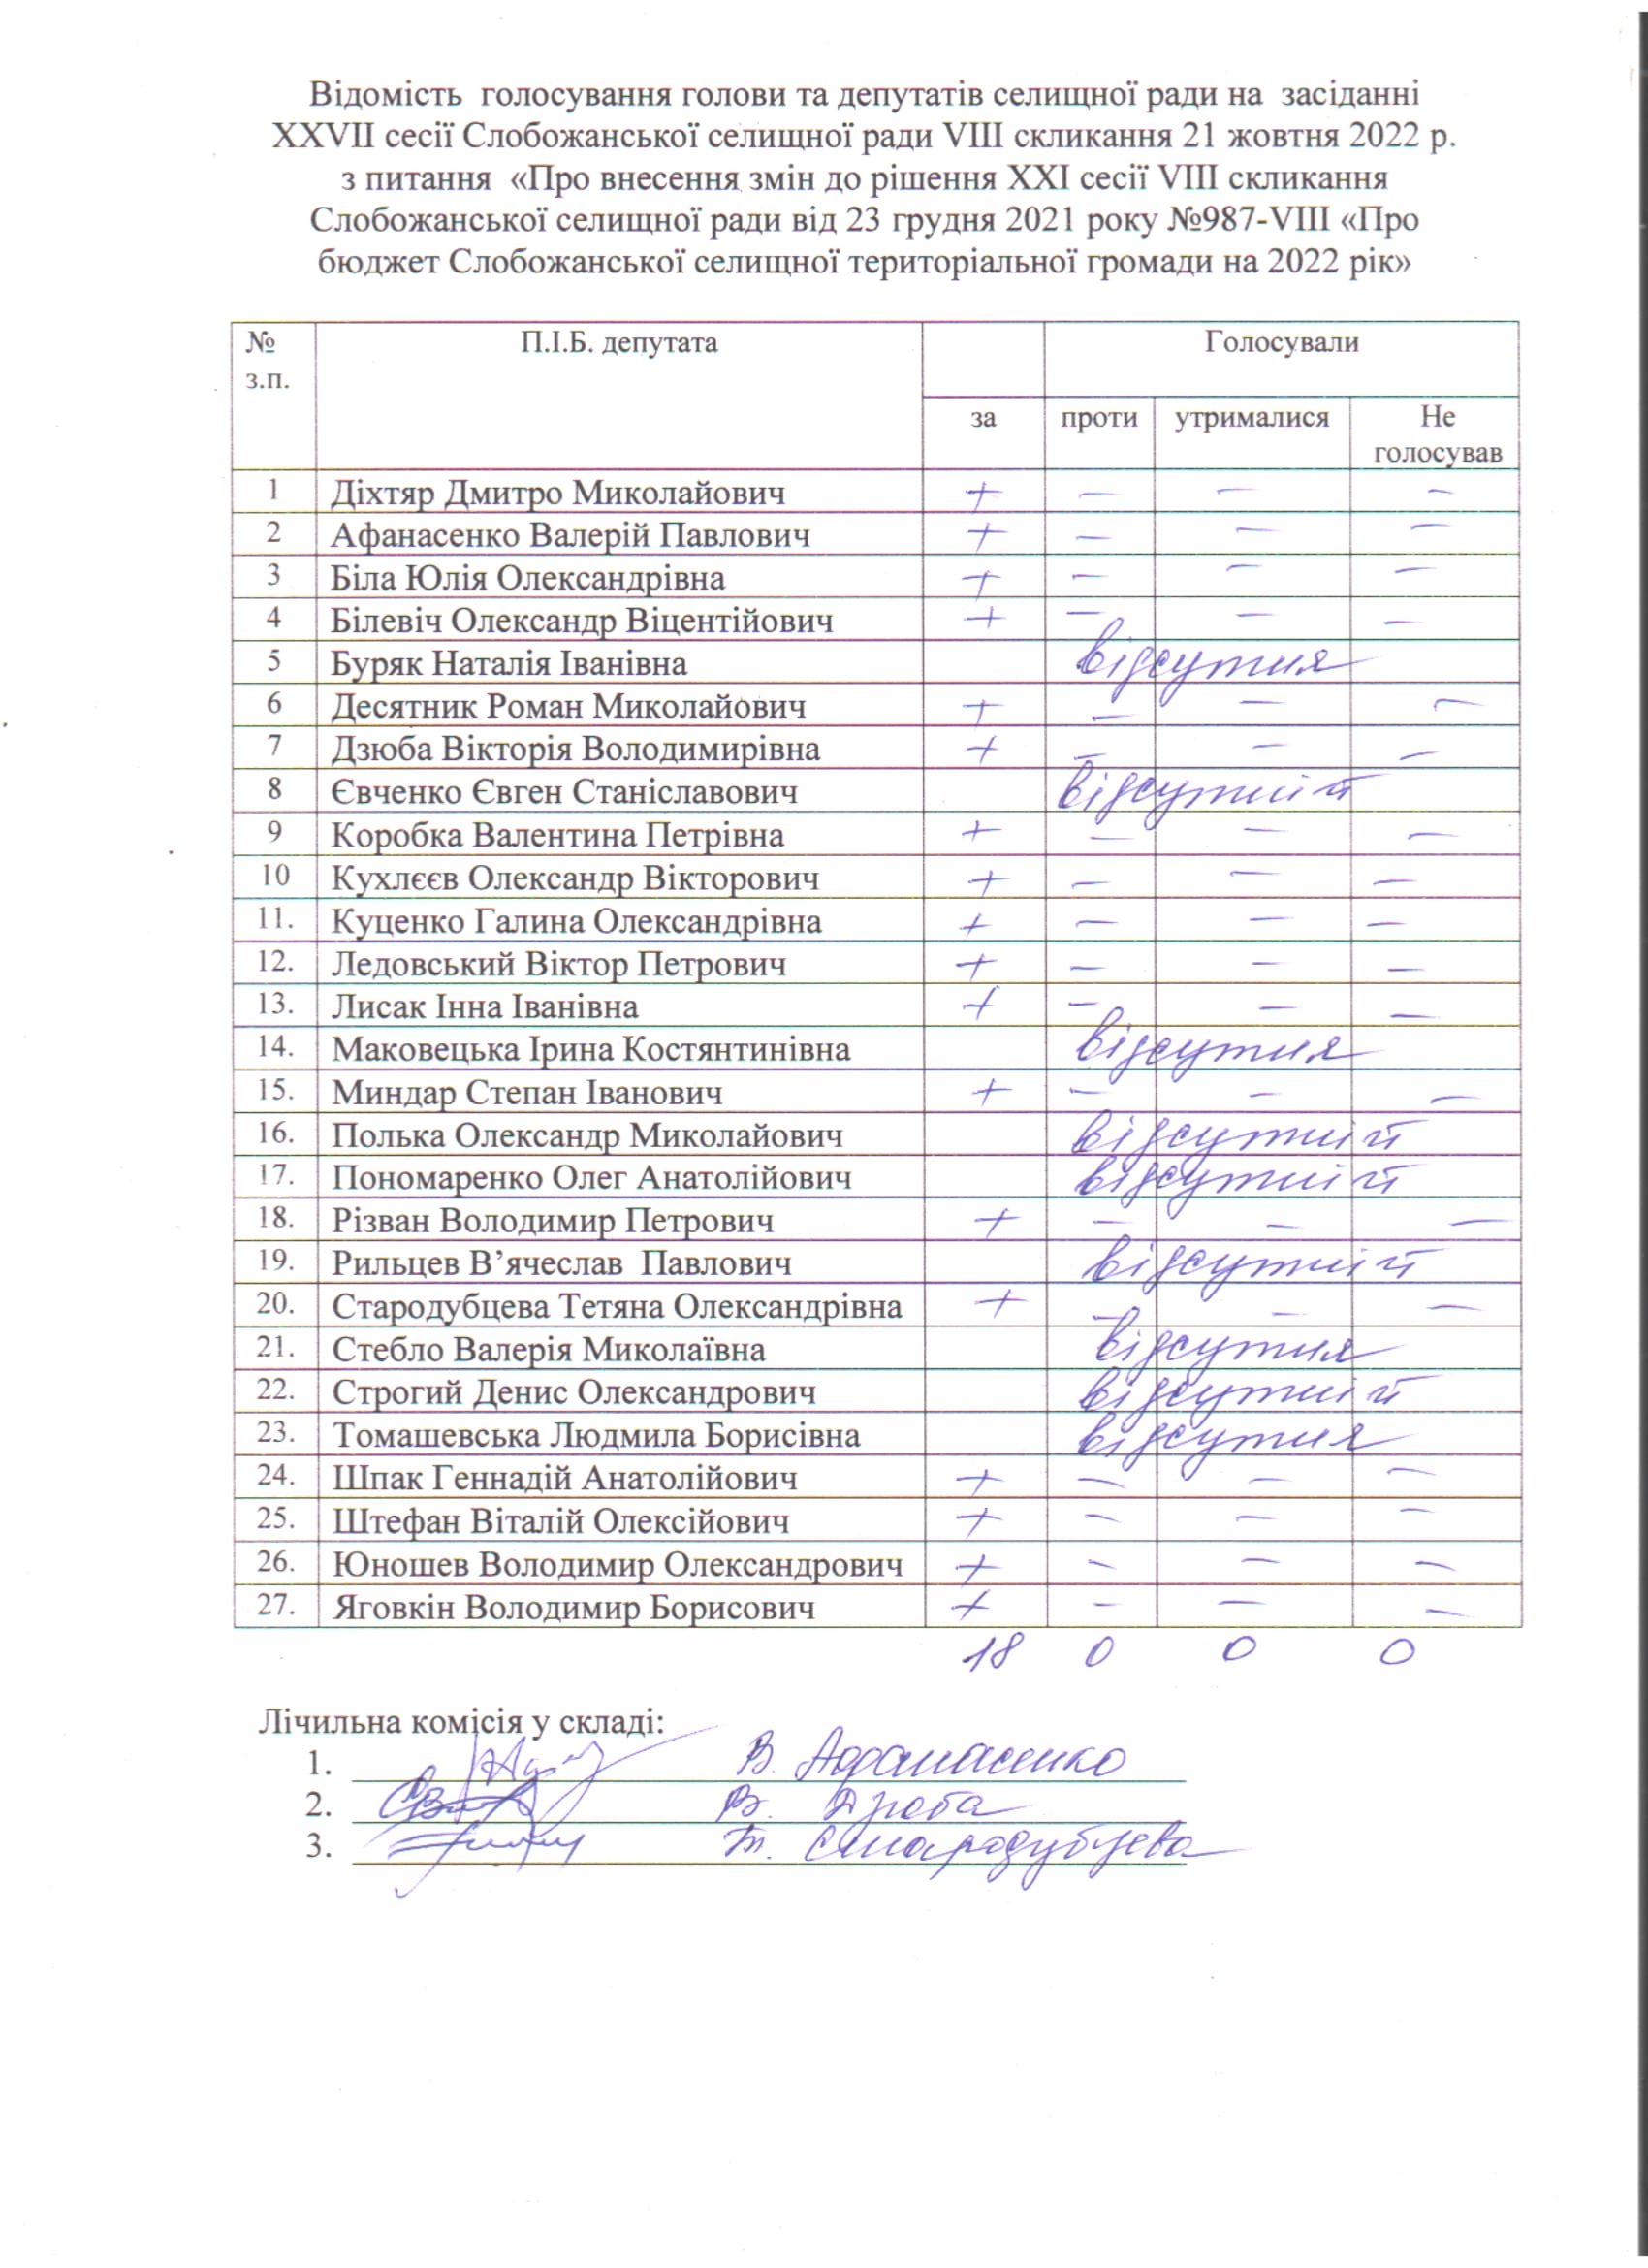 Відомість голосування голови та депутатів селищної ради на засіданні
XXVII сесії Слобожанської селищної ради VIII скликання 21 жовтня 2022 р.
з питання «Про внесення змін до рішення XXI сесії VIII скликання
Слобожанської селищної ради від 23 грудня 2021 року №987-VIII «Про
бюджет Слобожанської селищної територіальної громади на 2022 рік»
№ з.п. П.І.Б. депутата Голосували
за проти утрималися Не голосував
1 Діхтяр Дмитро Миколайович + – – –
2 Афанасенко Валерій Павлович + – – –
3 Біла Юлія Олександрівна + – – –
4 Білевіч Олександр Віцентійович + – – –
5 Буряк Наталія Іванівна відсутня
6 Десятник Роман Миколайович + – – –
7 Дзюба Вікторія Володимирівна + – – –
8 Євченко Євген Станіславович відсутній
9 Коробка Валентина Петрівна + – – –
10 Кухлєєв Олександр Вікторович + – – –
11. Куценко Галина Олександрівна + – – –
12. Ледовський Віктор Петрович + – – –
13. Лисак Інна Іванівна + – – –
14. Маковецька Ірина Костянтинівна відсутня
15. Миндар Степан Іванович + – – –
16. Полька Олександр Миколайович відсутній
17. Пономаренко Олег Анатолійович відсутній
18. Різван Володимир Петрович + – – –
19. Рильцев В’ячеслав Павлович відсутній
20. Стародубцева Тетяна Олександрівна + – – –
21. Стебло Валерія Миколаївна відсутня
22. Строгий Денис Олександрович відсутній
23. Томашевська Людмила Борисівна відсутня
24. Шпак Геннадій Анатолійович + – – –
25. Штефан Віталій Олексійович + – – –
26. Юношев Володимир Олександрович + – – –
27. Яговкін Володимир Борисович + – – –
18 0 0 0
Лічильна комісія у складі:
1. В. Афанасенко
2. В. Дзюба
3. Т. Стародубцева